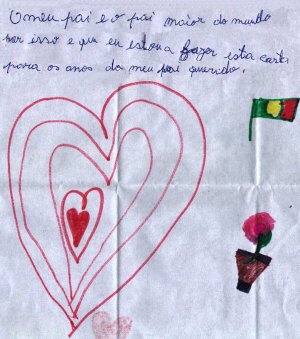 O meu pai e o pai maior do mundo
por isso e que eu estou a fazer esta carta
para os anos do meu pai querido.